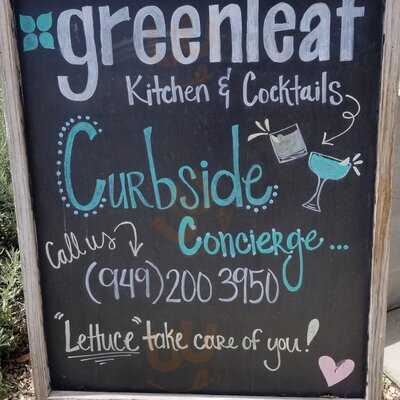 greenleaf
Kitchen & Cocktails
Curbside
Concierge...
Call us
(949) 200 3950
"Lettuce" take care of you!